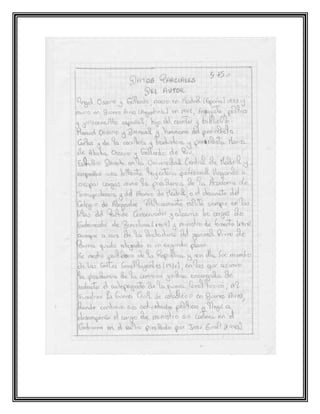 DATOS PARCIALES
DEL AUTOR
Angel Osorio y Gallardo nació en Madrid (España) 1873 y
murió en Buenos Aires (Argentina) en 1946, jurista político
y español, hijo del escritor y
Manuel Osorio y Bernard y hermano del periodista
Carlos y de la escritora y traductora y periodista María
de Atocha Osorio y Gallardo
Estudió Derecho en la Universidad Central de Madrid y
una brillante trayectoria profesional llegando a
ocupar cargos como de presidencia de la Academia de
Jurisprudencia y del Ateneo de Madrid, o el decanato del
Colegio de Abogados. Políticamente militó siempre en las
filas del Partido Conservador y alcanzó los cargos de
Gobernador de Barcelona y ministro de fomento
aunque a raíz de la dictadura del general Primo de
Rivera quedó relegado a un segundo plano.
Se mostró partidario de la República, y un día fue miembro
de las Cortes Constituyentes (1931), en las que asumió
la presidencia de la comisión jurídica encargada de
redactar el anteproyecto de la nueva Constitución, al
finalizar la Guerra Civil se estableció en Buenos Aires,
donde continuó su actividad política y llegó a
desempeñar el cargo de ministro sin cartera en el
Gobierno en el exilio presidido por José Giral